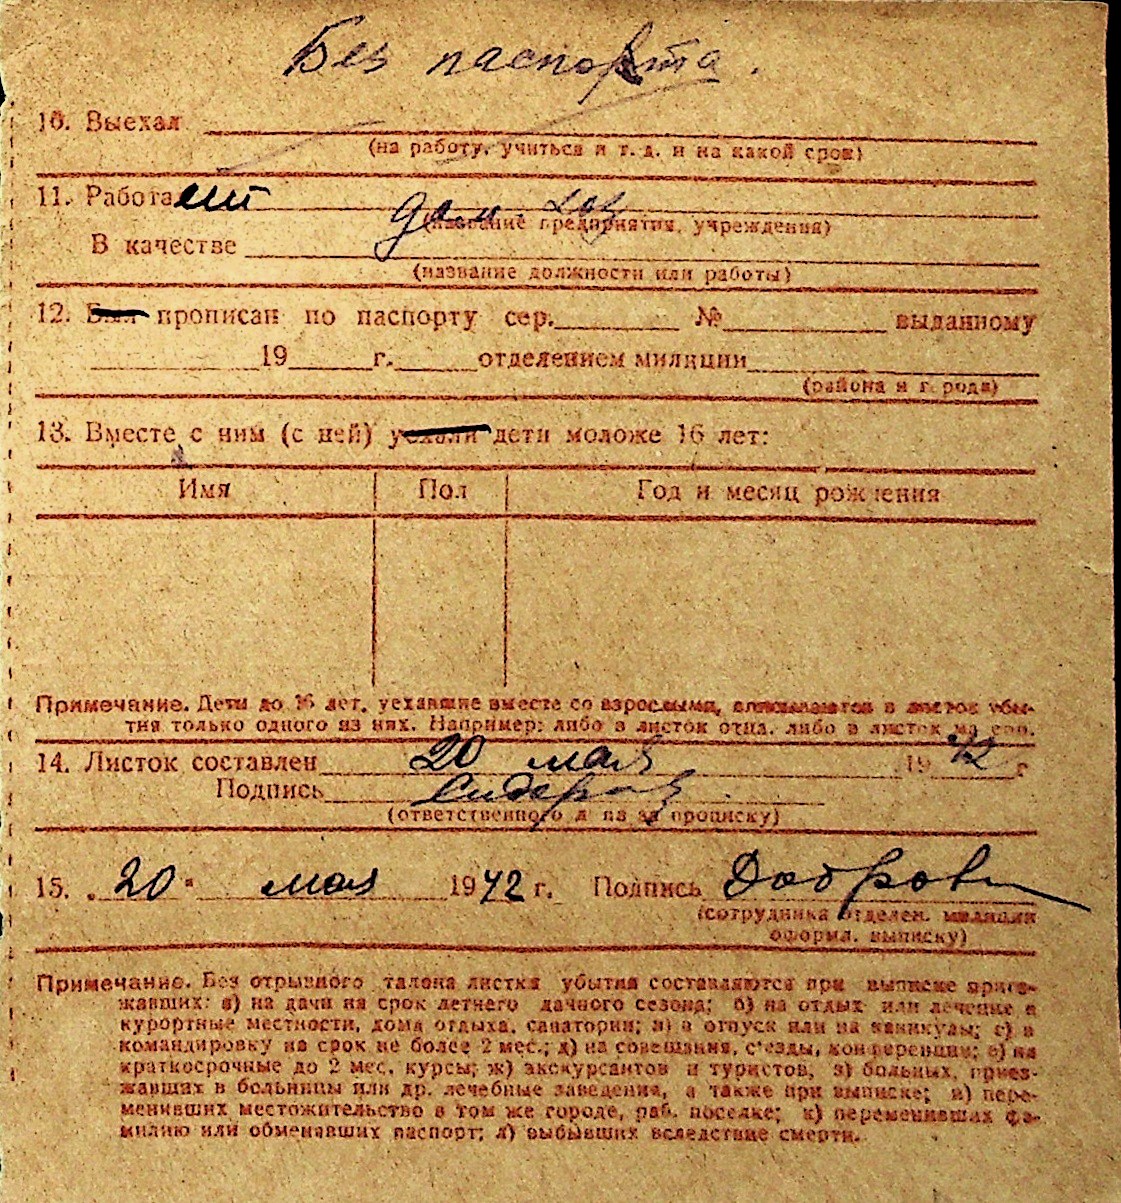 Без паспорта.
10. Выехал
(на работу, учиться и т. д. и на какой срок)
11. Работает
дом. хоз
(название предприятия, учреждения)
В качестве
(название должности или работы)
12. Был прописан по паспорту сер. № выданному
19 г. отделением милиции
(района и города)
13. Вместе с ним (с ней) уехали дети моложе 16 лет:
Имя Пол Год и месяц рождения
Примечание. Дети до 16 лет, уехавшие вместе со взрослыми, вписываются в листок убы-
тия только одного из них. Например: либо в листок отца, либо в листок матери.
14. Листок составлен 20 мая 1942 г
Подпись
(ответственного лица за прописку)
15. „20" мая 1942 г. Подпись Добров
(сотрудника отделен. милиции
оформл. выписку)
Примечание. Без отрывного талона листка убытия составляются при выписке приез-
жавших: а) на дачи на срок летнего дачного сезона; б) на отдых или лечение в
курортные местности, дома отдыха, санатории; в) в отпуск или на каникулы; г) в
командировку на срок не более 2 мес.; д) на совещания, с'езды, конференции; е) на
краткосрочные до 2 мес. курсы; ж) экскурсантов и туристов, з) больных, приез-
жавших в больницы или др. лечебные заведения, а также при выписке; и) пере-
менивших местожительство в том же городе, раб. поселке; к) переменивших фа-
милию или обменявших паспорт; л) выбывших вследствие смерти.